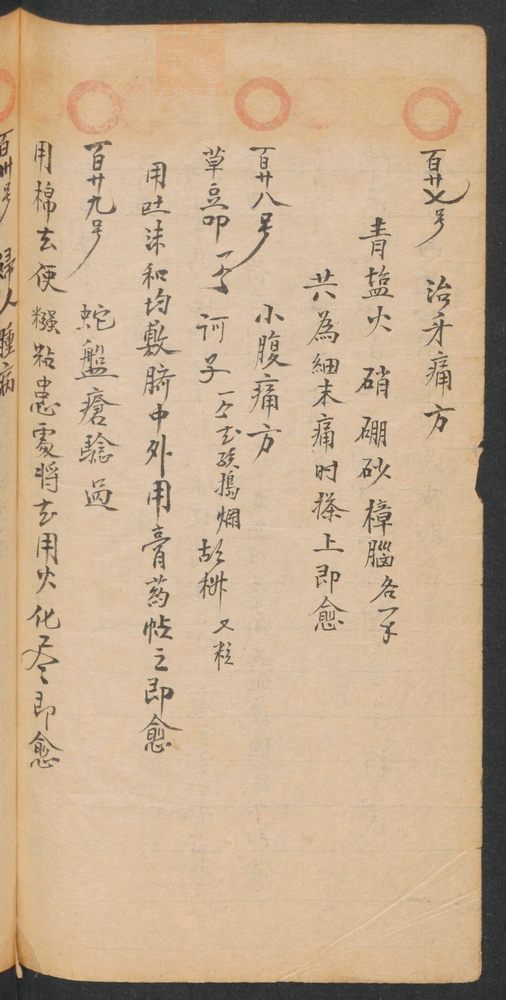 百廿七号 治牙痛方
青塩火硝硼砂樟腦各一
共為細末痛时搽上即愈
百廿八号 小腹痛方
草豆叩一个 诃子一个去核搗爛 胡椒 粒
用吐沫和均敷臍中外用膏药帖之即愈
百廿九号 蛇盤瘡驗過
用棉去便 粘患處將去用火化尽即愈
百卅号 婦人腫病